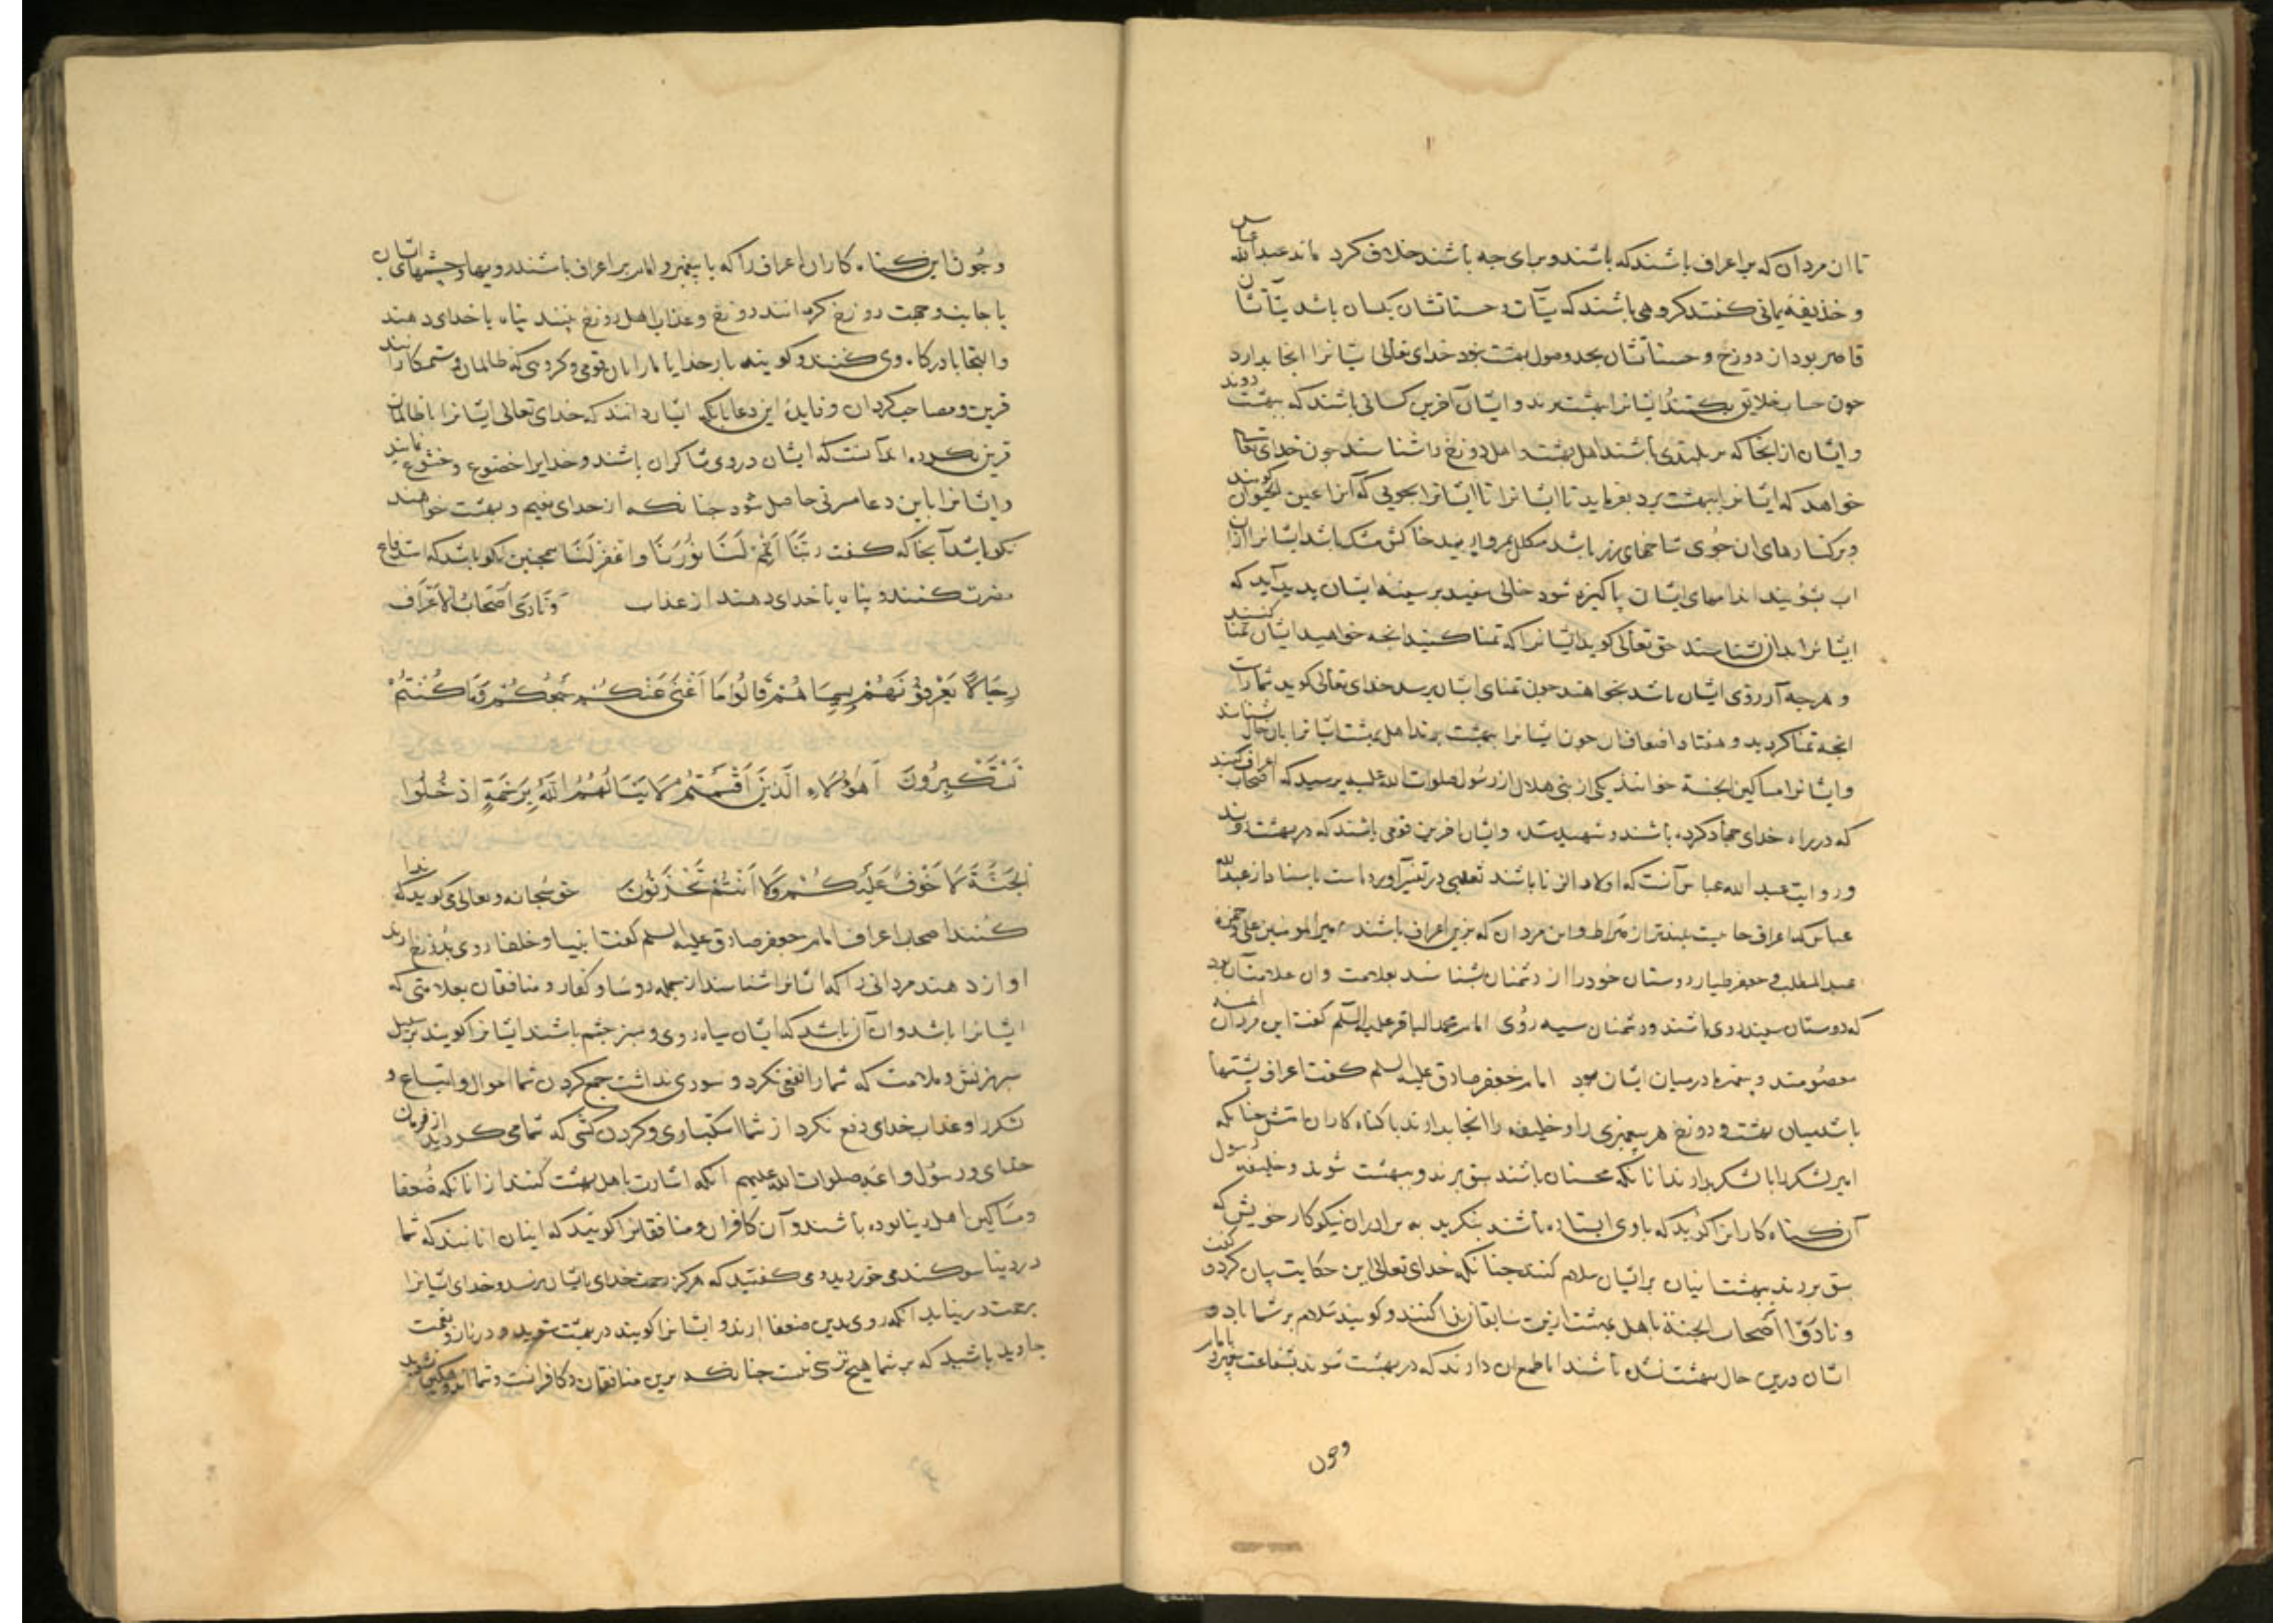 تا ان مردان که بر اعراف باشند که باشند و برای چه باشند خلاف کرده‌اند عبدالله عباس
و حذیفهٔ یمانی گفتند گروهی باشند که سیآت و حسناتشان یکسان باشد سیآتشان
قاصر بود از دوزخ و حسناتشان بحد وصول بهشت نبود خدای تعالی ایشانرا آنجا بدارد
چون حساب خلایق بکنند ایشانرا ببهشت برند و ایشان آخرین کسانی باشند که ببهشت روند
و ایشان از آنجا که بر بلندی باشند اهل بهشت و اهل دوزخ را شناسند چون خدای تعالی
خواهد که ایشانرا ببهشت برد بفرماید تا ایشانرا تا ایشانرا بجویی که آنرا عین الحیوان گویند
و بر کنارهای ان جوی شاخهای زر باشد مکلل بمروارید خاکش مشک باشد ایشانرا ازان
اب بشویند اندامهای ایشان پاکیزه شود خالی سفید بر سینهٔ ایشان پدید آید که
ایشانرا بدان شناسند حق تعالی گوید ایشانرا که تمنا کنید انچه خواهید ایشان تمنا کنند
و هرچه آرزوی ایشان باشد بخواهند چون تمنای ایشان برسد خدای تعالی گوید شما راست
انچه تمنا کردید و هفتاد اضعاف ان چون ایشانرا ببهشت برند اهل بهشت ایشانرا بان خال شناسند
و ایشانرا مساکین الجنة خوانند یکی از بنی هلال از رسول صلوات الله علیه پرسید که اصحاب اعراف کیند
که در راه خدای جهاد کرده باشند و شهید شده و ایشان اخرین قومی باشند که در بهشت روند
و روایت عبدالله عباس آنست که اولاد الزنا باشند ثعلبی در تفسیر آورده است باسناد از عبدالله
عباس که اعراف جاییست بلندتر از صراط و این مردان که برین اعراف باشند امیرالمومنین علی و حمزه
عبدالمطلب و جعفر طیار دوستان خود را از دشمنان بشناسند بعلامت و ان علامت آن بود
که دوستان سپید روی باشند و دشمنان سیه روی امام محمد الباقر علیه السلم گفت این مردان ائمهٔ
معصومند و پیغمبر درمیان ایشان بود امام جعفر صادق علیه السلم گفت اعراف پشتها
باشد میان بهشت و دوزخ هر پیغمبری را و خلیفه را انجا بدارند با گناه کاران امتش چنانکه
امیر لشکر را با لشکر بدارند تا انکه محسنان باشند سبق برند و ببهشت شوند و خلیفهٔ رسول
آن گناه کارانرا گوید که با وی ایستاده باشند بنگرید به برادران نیکوکار خویش که
سبق بردند ببهشت ایشان بر ایشان سلام کنند چنانکه خدای تعالی این حکایت بیان کرد و گفت
و نادوا اصحاب الجنة با اهل بهشت ازین سابقان ندا کنند و گویند سلام بر شما باد و
ایشان درین حال ببهشت نشده باشند اما طمع ان دارند که در بهشت شوند بشفاعت پیغمبر و امام
وچون
و چون این گناه کاران اعراف را که با پیغمبر و امام بر اعراف باشند رویها و چشمهای ایشان
با جانب و جهت دوزخ کرده‌اند دوزخ و عذاب اهل دوزخ بینند پناه با خدای دهند
و التجا با درگاه وی کنند و گویند بار خدایا ما را با ان قومی و گروهی که ظالمان و ستمکارانند
قرین و مصاحب مگردان و فایدهٔ این دعا با انکه ایشان دانند که خدای تعالی ایشانرا با ظالمان
قرین نکند انست که ایشان در وی شاکران باشند و خدایرا خضوع و خشوع نمایند
و ایشانرا باین دعا مسرتی حاصل شود چنانکه از خدای نعیم و بهشت خواهند
نکو باشد آنجا که گفت رَبَّنَا اَتْمِمْ لَنَا نُورَنَا وَاغْفِرْ لَنَا همچنین نکو باشد که استدفاع
مضرت کنند و پناه با خدای دهند از عذاب وَنَادَى اَصْحَابُ الْاَعْرَافِ
رِجَالًا يَعْرِفُونَهُمْ بِسِيمَاهُمْ قَالُوا مَا اَغْنَى عَنْكُمْ جَمْعُكُمْ وَمَا كُنْتُمْ
تَسْتَكْبِرُونَ اَهٰؤُلَاءِ الَّذِينَ اَقْسَمْتُمْ لَا يَنَالُهُمُ اللّٰهُ بِرَحْمَةٍ اُدْخُلُوا
الْجَنَّةَ لَا خَوْفٌ عَلَيْكُمْ وَلَا اَنْتُمْ تَحْزَنُونَ حق سبحانه و تعالی می گوید که ندا
کنند اصحاب اعراف امام جعفر صادق علیه السلم گفت انبیا و خلفا روی بدوزخ ارند
اواز دهند مردانی را که ایشانرا شناسند از جمله روسا و کفار و منافقان بعلامتی که
ایشانرا باشد و ان آن باشد که ایشان سیاه روی و سبز چشم باشند ایشانرا گویند بر سبیل
سرزنش و ملامت که شما را نفعی نکرد و سودی نداشت جمع کردن شما اموال و اتباع و
لشکر را و عذاب خدای دفع نکرد از شما استکباری و گردن کشی که شما می کردید از فرمان
خدای و رسول و ائمه صلوات الله علیهم انگه اشارت باهل بهشت کنند از انانکه ضعفا
و مساکین اهل دنیا بوده باشند و آن کافران و منافقانرا گویند که اینان انانند که شما
در دنیا سوگند می خوردید و می گفتید که هرگز رحمت خدای بایشان نرسد و خدای ایشانرا
برحمت درنیابد انگه روی بدین ضعفا ارند و ایشانرا گویند در بهشت شوید و در ناز و نعمت
جاوید باشید که بر شما هیچ ترسی نیست چنانکه برین منافقان و کافرانست و شما اندوهگین نشوید